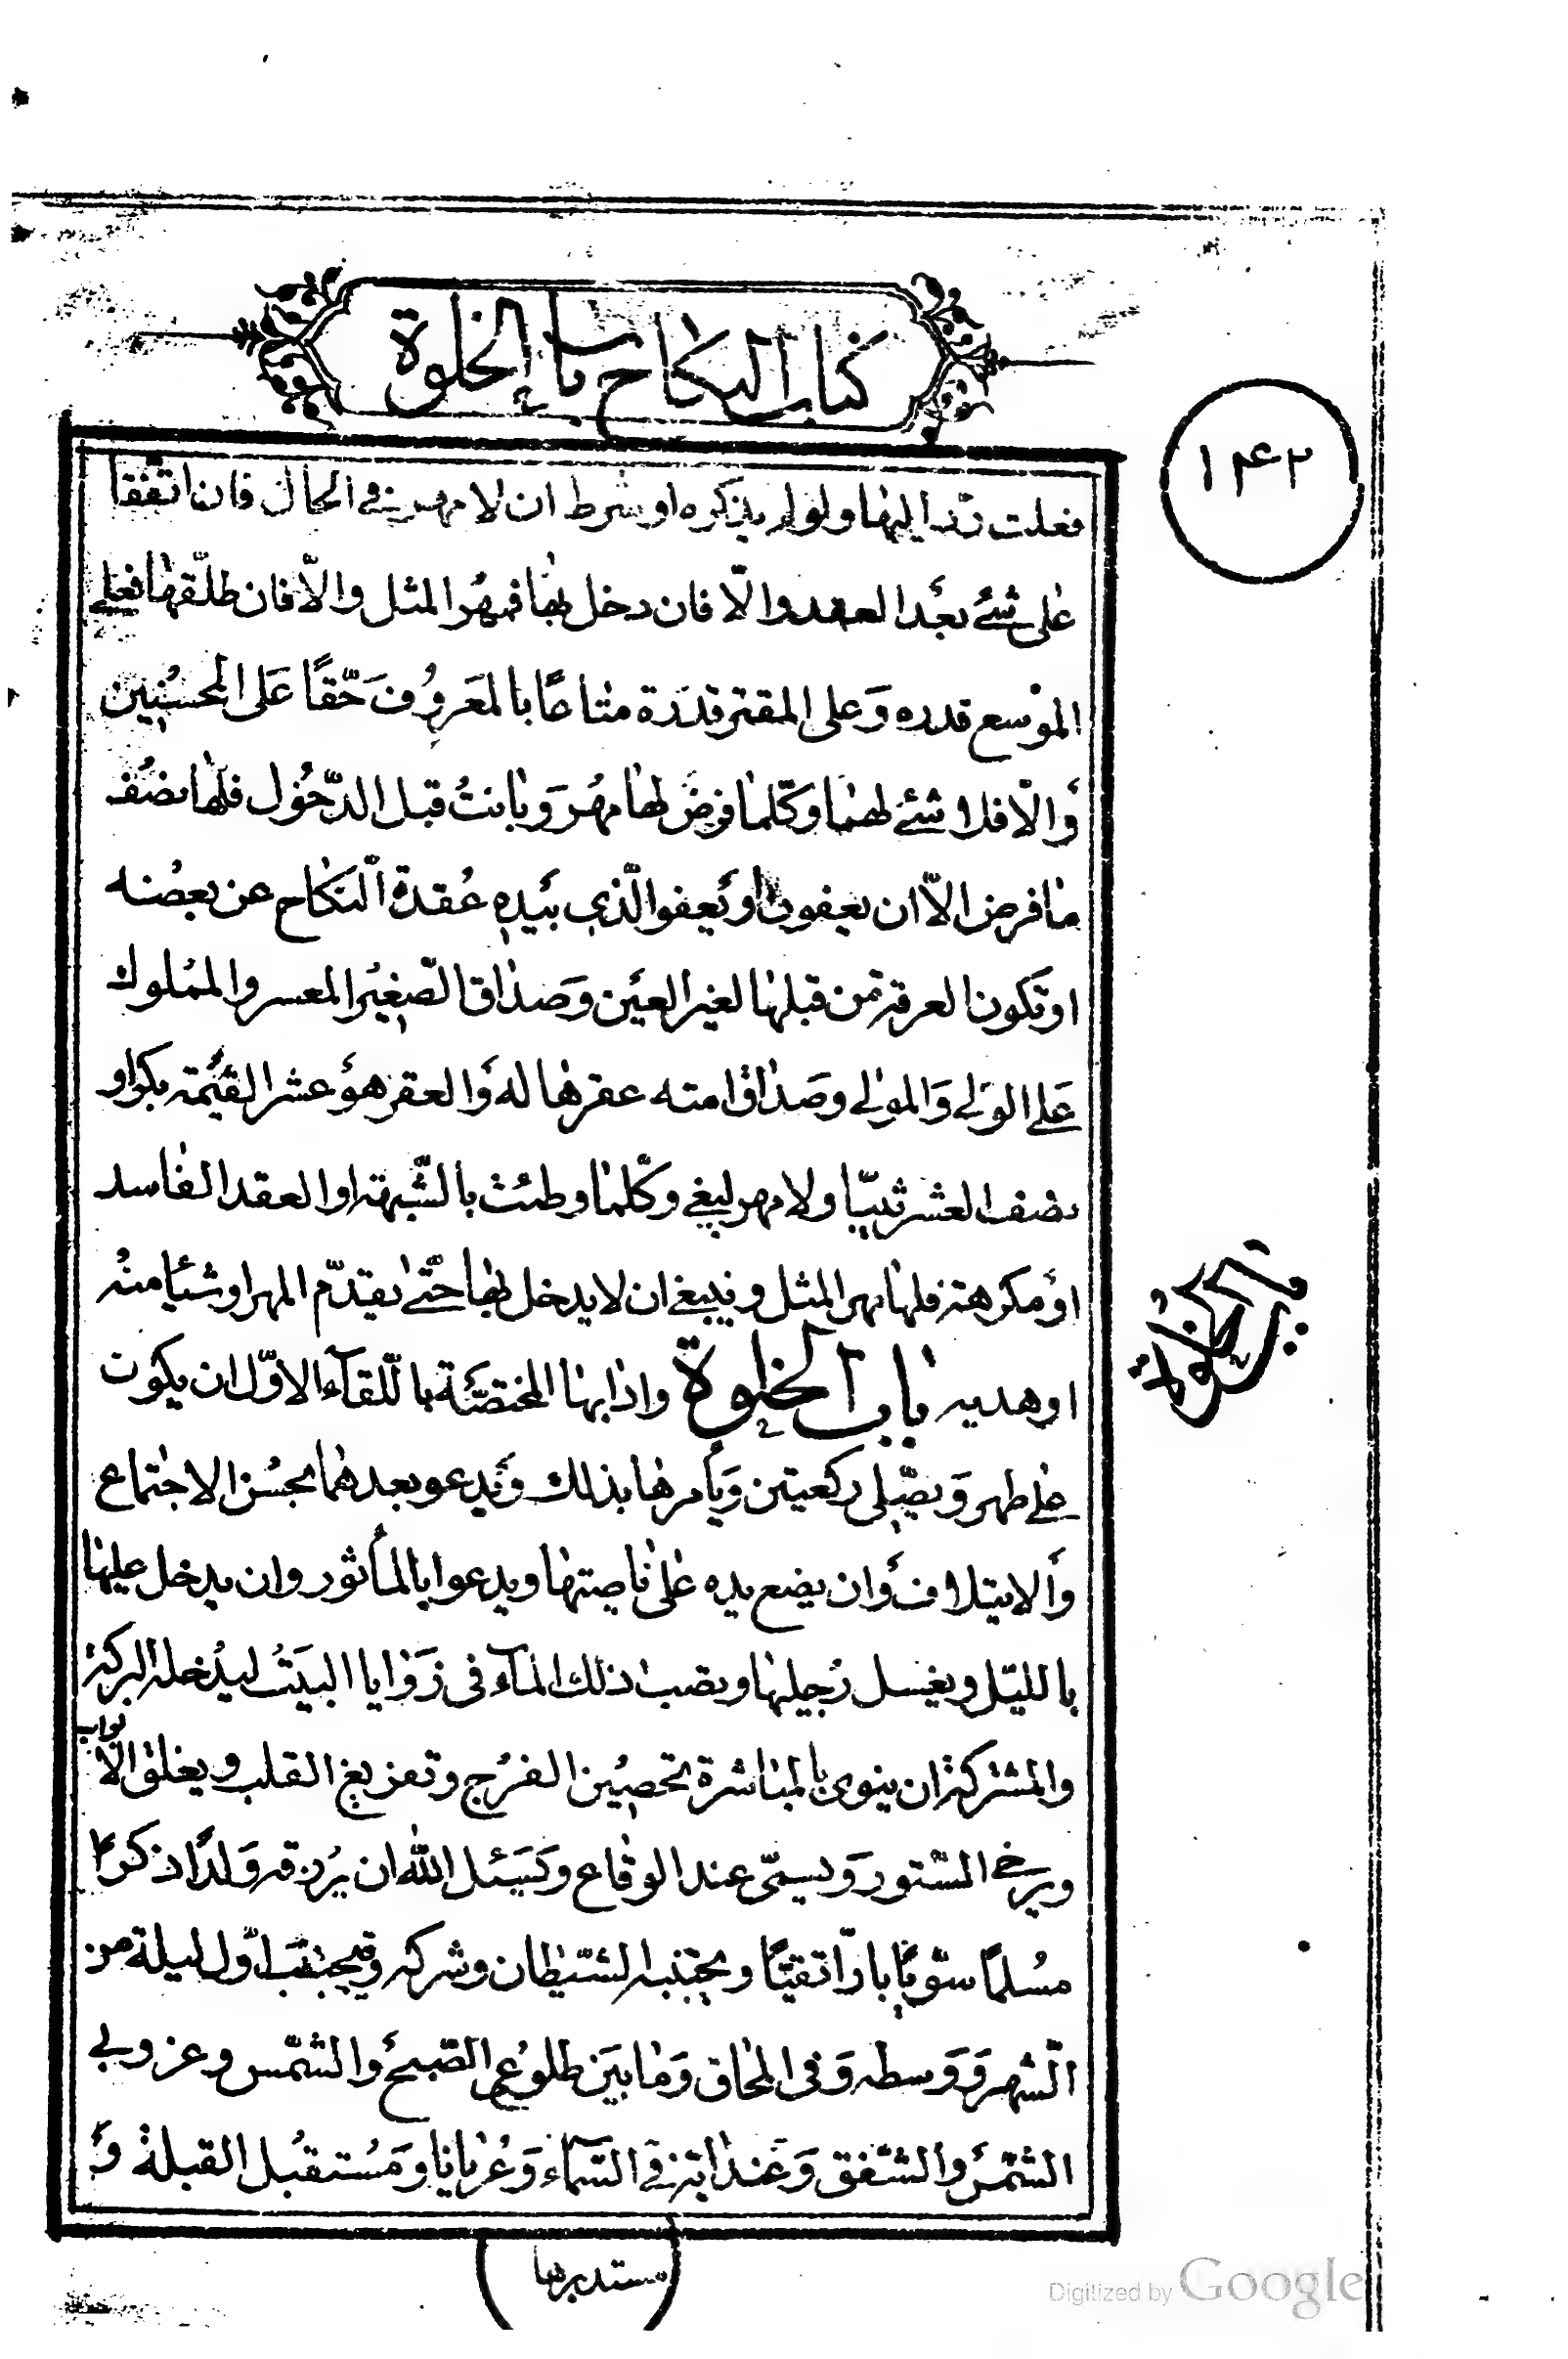 كتاب النكاح باب الخلوة
۱۴۲
فعلت ردّ اليها ولو لم يذكره او شرط ان لا مهر في الحال فان اتّفقا
على شئ بعد العقد والّا فان دخل بها فمهر المثل والّا فان طلّقها فعلى
الموسع قدره وَعلى المقتر قدره متاعًا بالمَعروُف حَقّاً عَلى المحسنين
وَالّا فلا شئ لهما وكلّما فرض لها مهر وَبانت قبل الدّخول فلها نصف
ما فرض الّا ان يعفون او يَعفو الّذي بيَده عُقدة النّكاح عن بعضه
او تكون الفرقة من قبلها لغير العيَن وَصداق الصّغير المعسر والمملوك
عَلى الولي وَالمولى وصَداق امته عقرها له وَالعقر هوَ عشر القيَمة بكرا و
نصف العشر ثيبّا ولا مهر لبغي وكلّما وطئت بالشّبهة او العقد الفاسد
اوَ مكرهة فلها مهر المثل وينبغي ان لا يدخل بها حتّى يقدّم المهر او شيئا منه
او هديه باب الخلوة واذابها المختصّة باللّقآء الاوّل ان يكون
على طهر وَيصّلى ركعتين وَيأمرها بذلك وَيدعو بعدهما بحسن الاجتماع
وَالايتلاف وَان يضع يده على ناصيتها ويدعوا بالمأثور وان يدخل عليها
بالليّل ويغسل رجليها ويصب ذلك المآء في زوَايا البيَت ليدخله البركة
والمشتركة ان ينوى بالمباشرة تحصين الفرُج وتفريغ القلب ويغلق الابواب
ويرخي السّتور وَيسمّى عند الوقاع وَيسَئل الله ان يُرزقه وَلدًا ذكرًا
مسُلمًا سوّيًا بارّا تقيّا ويجتنبه الشّيطان وشركه ويجتنب اوّل ليلة من
الشّهر وَوَسطه وَفي المحاق وَما بيَن طلوعي الصّبح وَالشّمس وغروبي
الشّمس والشّفق وَعند اية في السّمآء وَعُريانا وَمسُتقبل القبلة وَ
مستدبرها
باب الخلوة
Digitized by Google